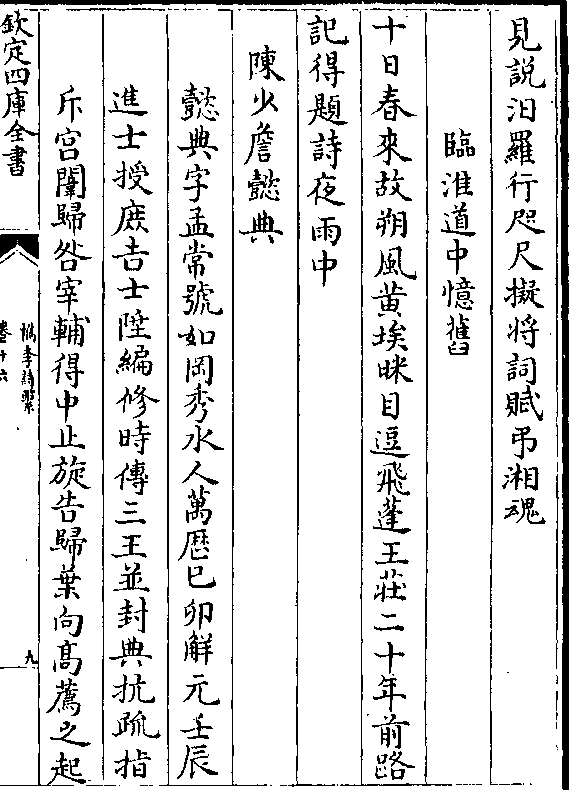 見説汨羅行咫尺擬將詞賦弔湘魂
臨淮道中憶舊
十日春來故朔風黄埃眯目逗飛蓬王莊二十年前路
記得題詩夜雨中
陳少詹懿典
懿典字孟常號如岡秀水人萬歴已卯解元壬辰
進士授庶吉士陞編修時傳三王並封典抗疏指
斥宫闈歸咎宰輔得中止旋告歸葉向髙薦之起
欽定四庫全書
檇李詩繫
卷十六
九